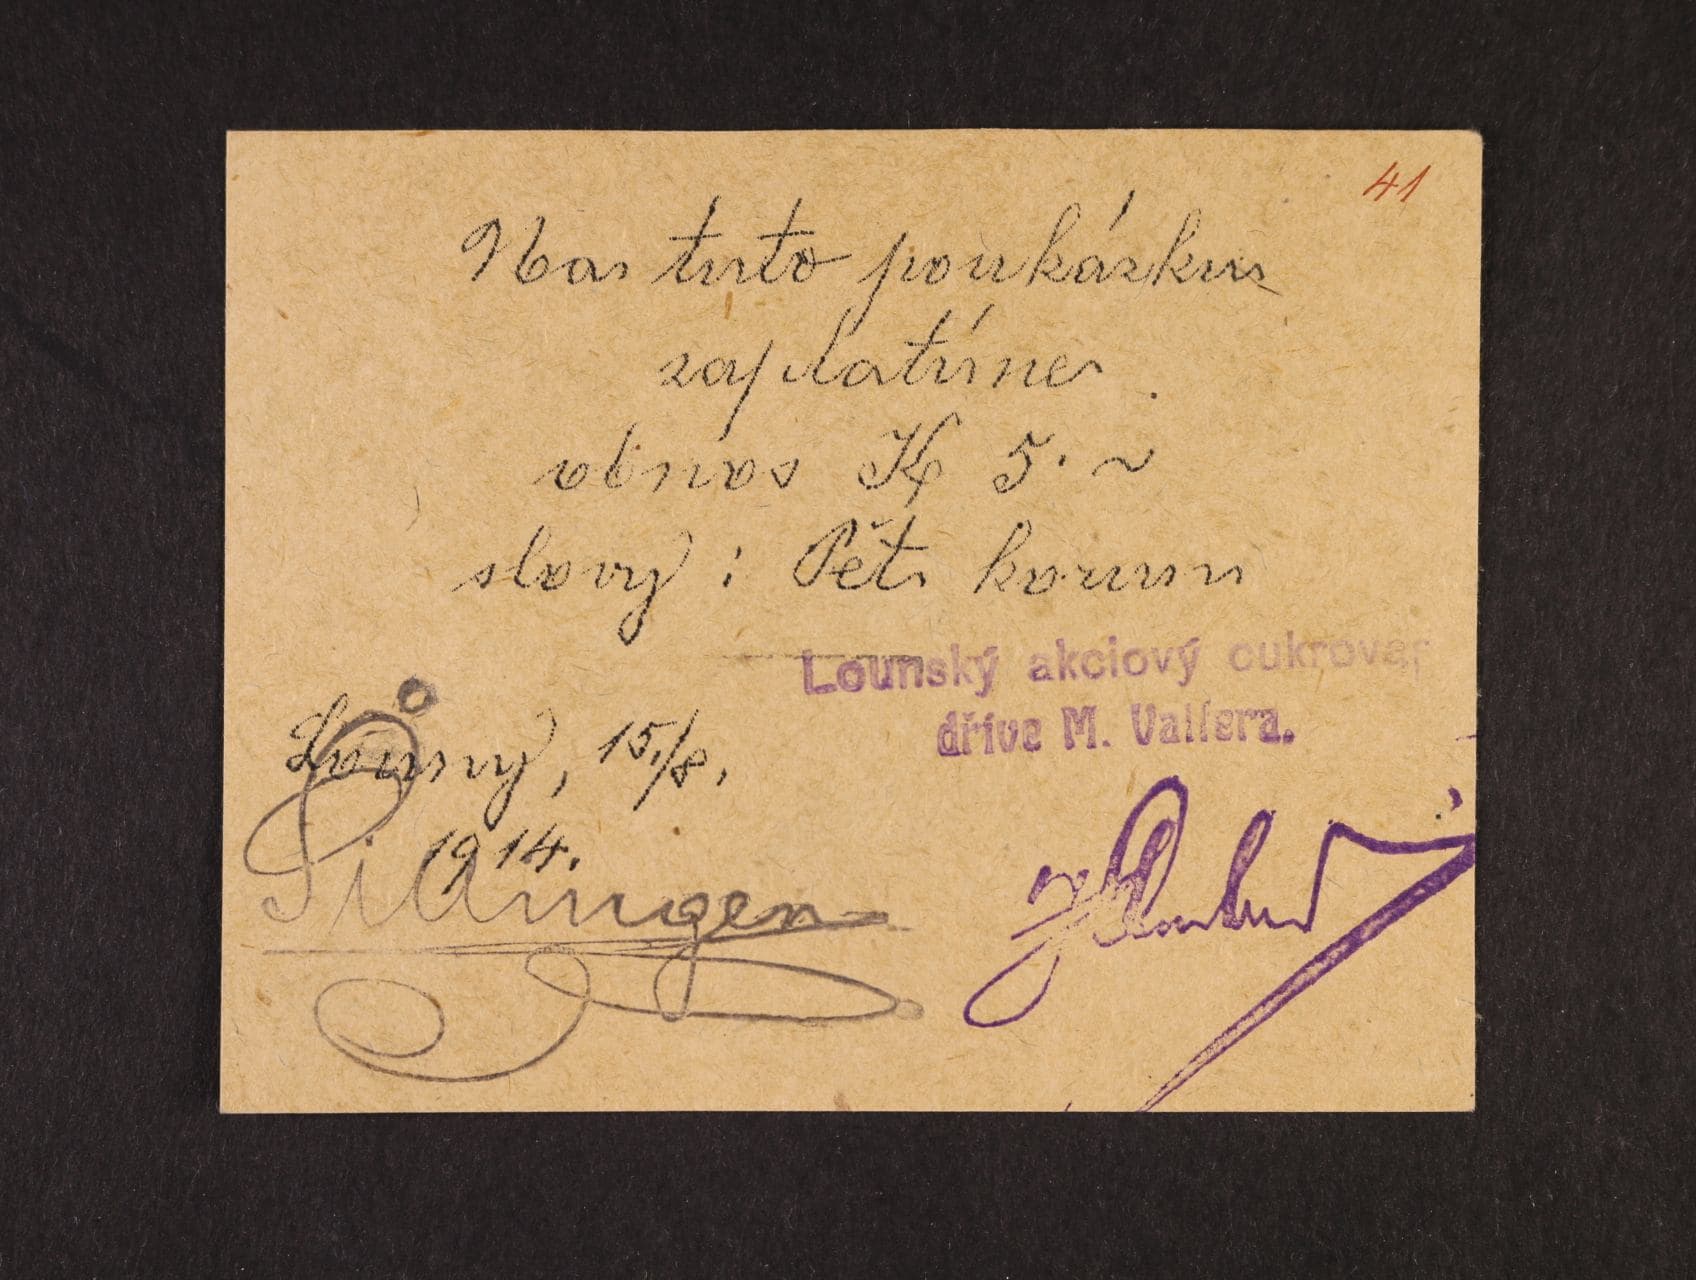 41
Na tuto poukázku
zaplatíme
obnos K 5.~
slovy : Pět korun
Lounský akciový cukrovar
dříve M. Valtera.
Louny, 15./8.
1914.